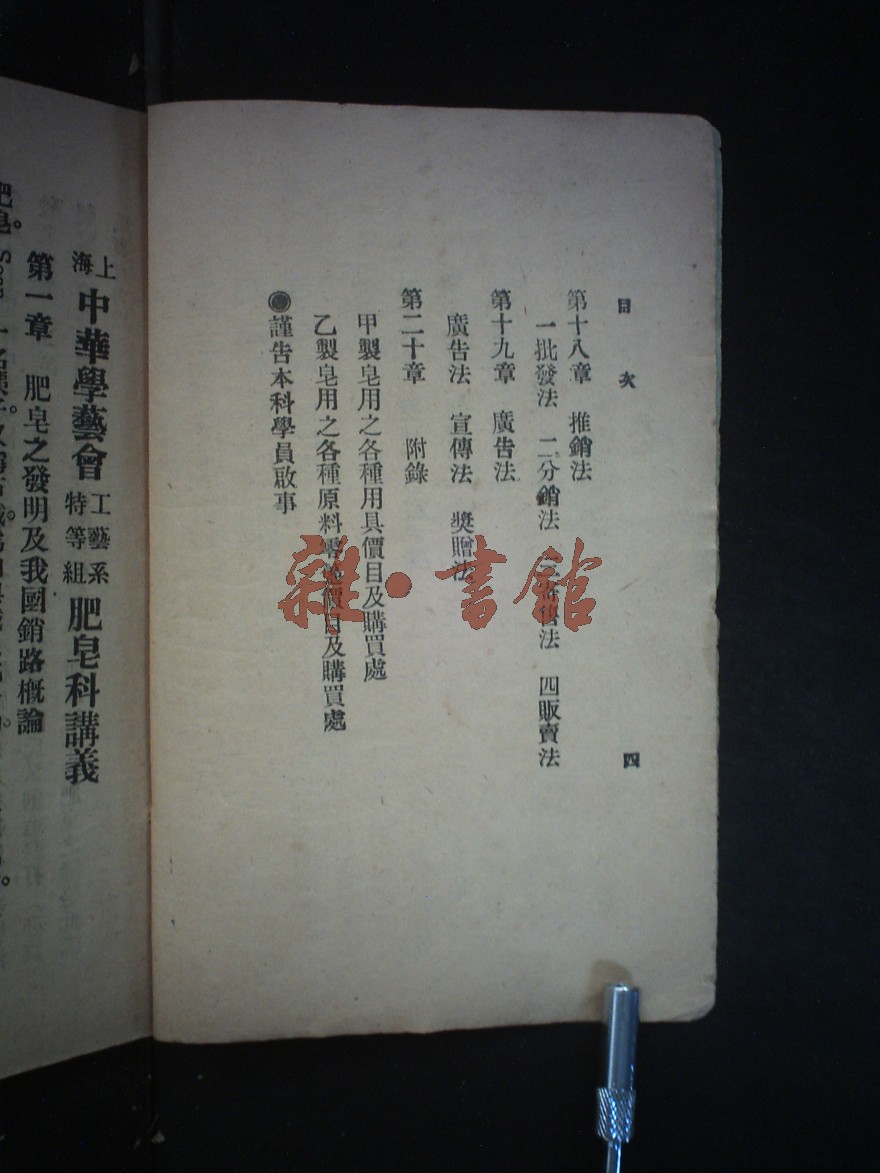 目次
四
第十八章 推銷法
一批發法 二分銷法 法 四販賣法
第十九章 廣告法
廣告法 宣傳法 獎贈法
第二十章 附錄
甲製皂用之各種用具價目及購買處
乙製皂用之各種原料價目及購買處
●謹告本科學員啟事
上海中華學藝會工藝系特等組肥皂科講義
第一章 肥皂之發明及我國銷路概論
肥皂。
雜·書館